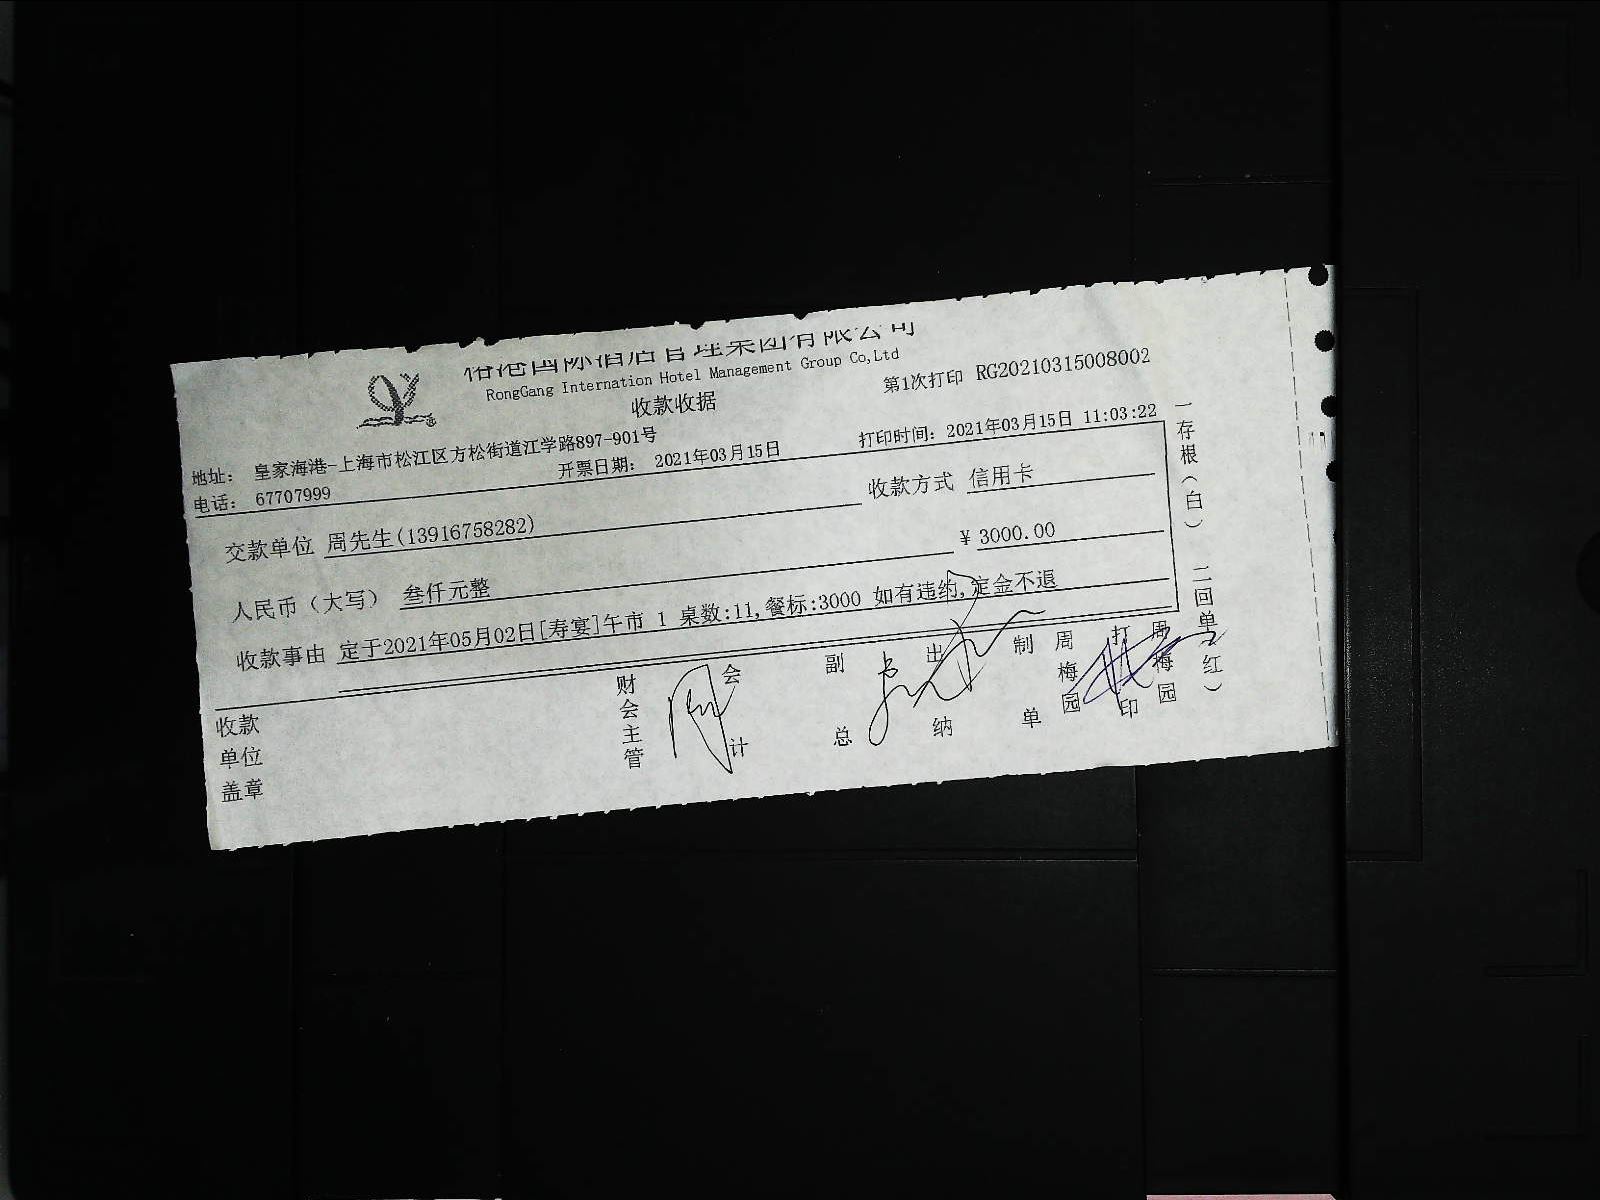 国际酒店管理集团有限公司
RongGang Internation Hotel Management Group Co,Ltd
收款收据
第1次打印 RG20210315008002
地址： 皇家海港-上海市松江区方松街道江学路897-901号
电话： 67707999
开票日期： 2021年03月15日
打印时间：2021年03月15日 11:03:22
交款单位 周先生(13916758282)
收款方式 信用卡
人民币（大写） 叁仟元整
¥ 3000.00
收款事由 定于2021年05月02日[寿宴]午市 1 桌数:11,餐标:3000 如有违约,定金不退
收款单位盖章
财会主管
会计
副总
出纳
制单
周梅园
打印
周梅园
一存根（白） 二回单（红）